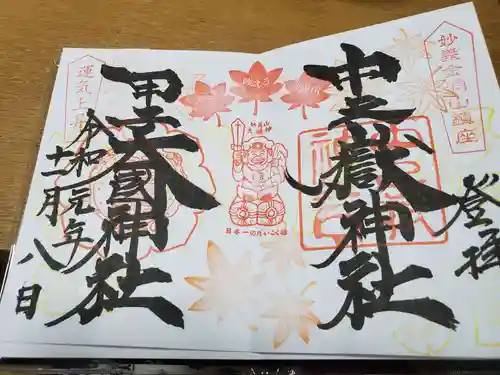 妙義金洞山鎮座
登拝
中之嶽神社
日本一のだいこく様
甲子大國神社
運気上昇
令和元年
十一月八日